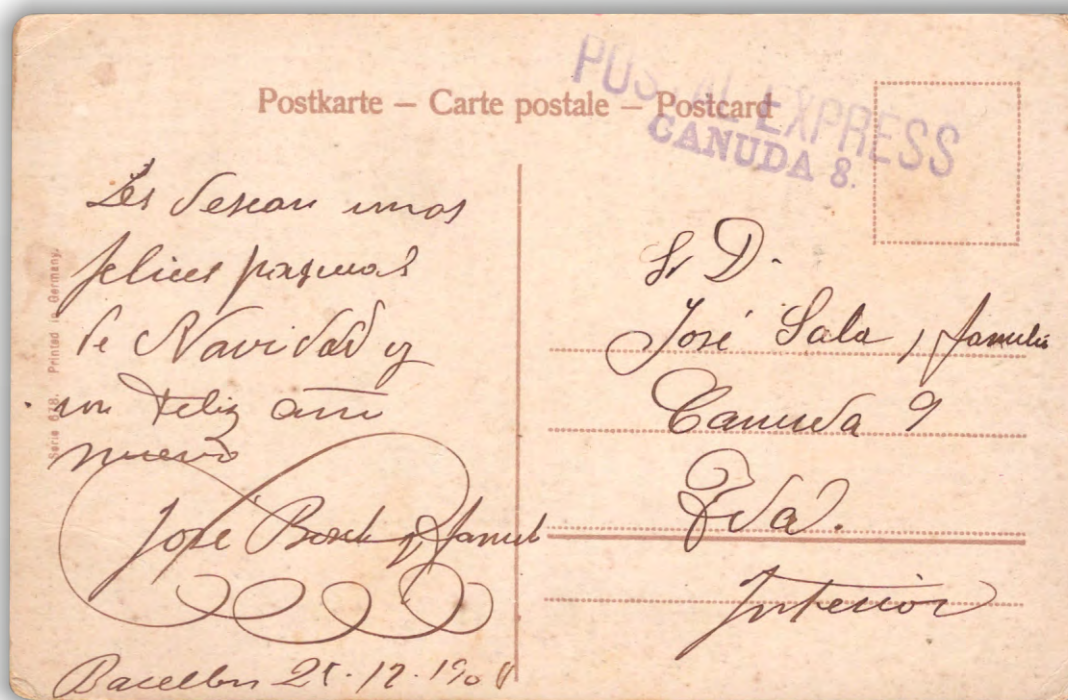 Postkarte – Carte postale – Postcard
POSTAL EXPRESS
CANUDA 8.
Serie 678. Printed in Germany.
Les desean unas
felices pasquas
de Navidad y
un feliz año
nuevo
José Bosch y famil
Sr D.
José Sala y familia
Canuda 9
Interior